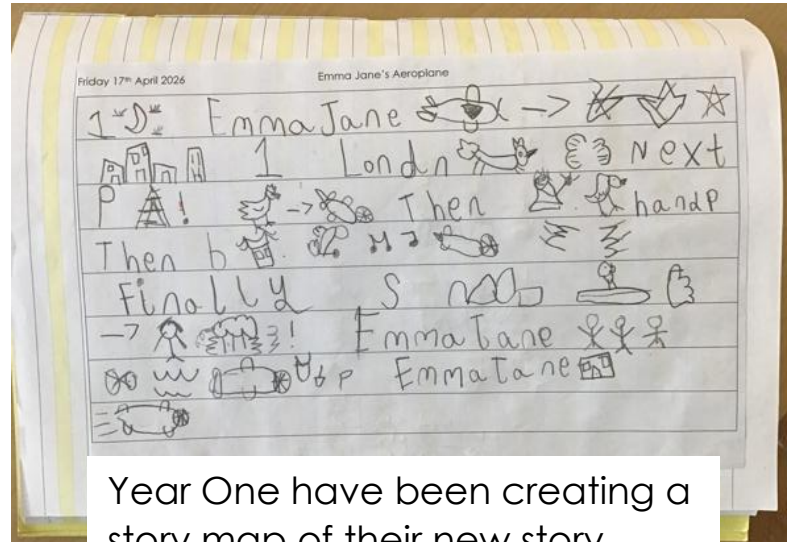 Friday 17th April 2026 Emma Jane's Aeroplane
1 D Emma Jane
1 Londn Next
P ! Then handP
Then b
Finally S
! Emma Jane
P Emma Jane
Year One have been creating a
story map of their new story